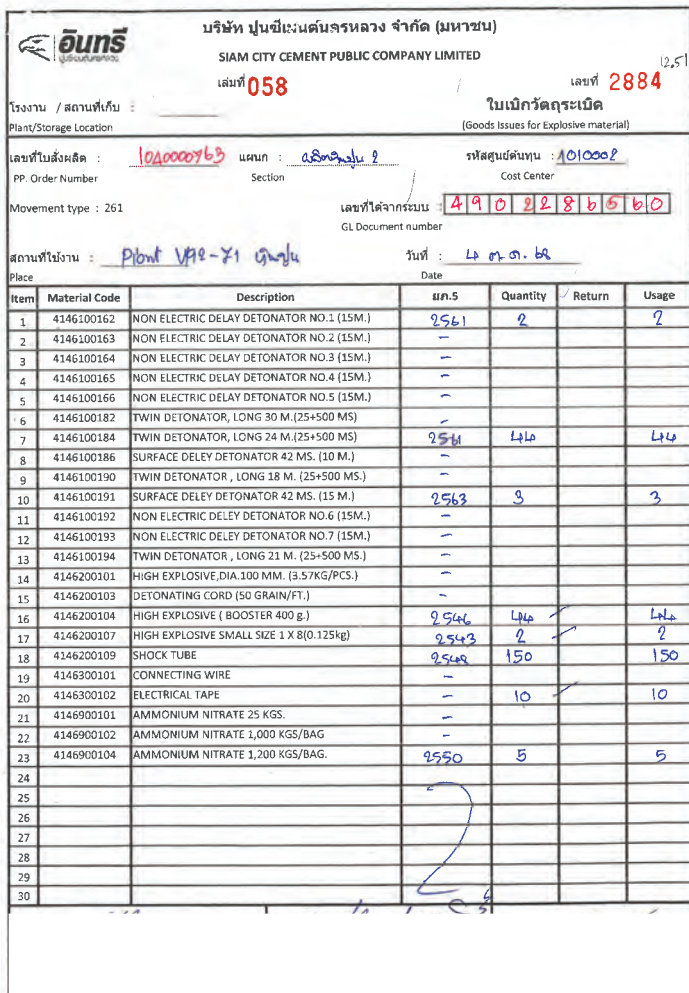 อินทรี
บริษัท ปูนซีเมนต์นครหลวง จำกัด (มหาชน)
SIAM CITY CEMENT PUBLIC COMPANY LIMITED
เล่มที่ 058 เลขที่ 2884
โรงงาน / สถานที่เก็บ : ใบเบิกวัตถุระเบิด
Plant/Storage Location (Goods Issues for Explosive material)
เลขที่ใบสั่งผลิต : 1040000763 แผนก : 2 รหัสศูนย์ต้นทุน : 1010002
PP. Order Number Section Cost Center
Movement type : 261 เลขที่ได้จากระบบ : 4902286560
GL Document number
สถานที่ใช้งาน : หินปูน วันที่ : 4 ต.ค. 68
Place Date
Item Material Code Description มภ.5 Quantity Return Usage
1 4146100162 NON ELECTRIC DELAY DETONATOR NO.1 (15M.) 2561 2 2
2 4146100163 NON ELECTRIC DELAY DETONATOR NO.2 (15M.) -
3 4146100164 NON ELECTRIC DELAY DETONATOR NO.3 (15M.) -
4 4146100165 NON ELECTRIC DELAY DETONATOR NO.4 (15M.) -
5 4146100166 NON ELECTRIC DELAY DETONATOR NO.5 (15M.) -
6 4146100182 TWIN DETONATOR, LONG 30 M.(25+500 MS) -
7 4146100184 TWIN DETONATOR, LONG 24 M.(25+500 MS) 2561 44 44
8 4146100186 SURFACE DELEY DETONATOR 42 MS. (10 M.) -
9 4146100190 TWIN DETONATOR , LONG 18 M. (25+500 MS.) -
10 4146100191 SURFACE DELEY DETONATOR 42 MS. (15 M.) 2563 3 3
11 4146100192 NON ELECTRIC DELEY DETONATOR NO.6 (15M.) -
12 4146100193 NON ELECTRIC DELEY DETONATOR NO.7 (15M.) -
13 4146100194 TWIN DETONATOR , LONG 21 M. (25+500 MS.) -
14 4146200101 HIGH EXPLOSIVE,DIA.100 MM. (3.57KG/PCS.) -
15 4146200103 DETONATING CORD (50 GRAIN/FT.) -
16 4146200104 HIGH EXPLOSIVE ( BOOSTER 400 g.) 2546 44 44
17 4146200107 HIGH EXPLOSIVE SMALL SIZE 1 X 8(0.125kg) 2543 2 2
18 4146200109 SHOCK TUBE 2548 150 150
19 4146300101 CONNECTING WIRE -
20 4146300102 ELECTRICAL TAPE - 10 10
21 4146900101 AMMONIUM NITRATE 25 KGS. -
22 4146900102 AMMONIUM NITRATE 1,000 KGS/BAG -
23 4146900104 AMMONIUM NITRATE 1,200 KGS/BAG. 2550 5 5
24
25
26
27
28
29
30